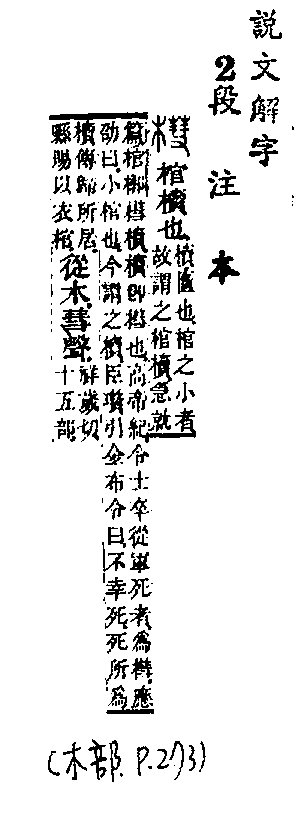 説文解字
2段注本
槥 棺櫝也
櫝匱也棺之小者
故謂之棺櫝急就
篇棺槨槥櫝櫝卽槥也高帝紀令士卒從軍死者爲槥應
劭曰小棺也今謂之櫝臣瓚引金布令曰不幸死死所爲
櫝傳歸所居
縣賜以衣棺
從木彗聲
祥歲切
十五部
(木部 P.273)